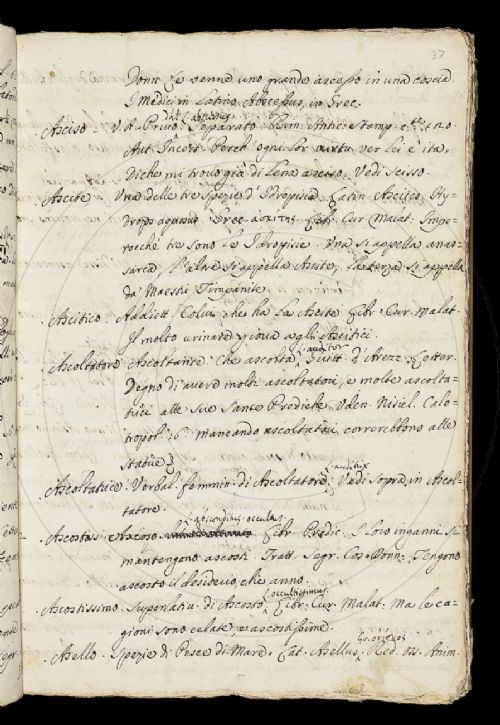 37
Donn. Le venne uno grande ascesso in una coscia.
I Medici in Latino Abscessus, in Grec.
Asciso. V.A. Privo. Separato. Rim. Antic. Stamp. c.te 120
Aut. Incert. Perch' ogni lor virtù ver lei è ita,
Di che mi trovo già di lena asciso. Vedi Sciso.
Ascite. Una delle tre spezie d' Idropisia. Latin. Ascites. Hy-
drops aquosus. Grec. ασκίτης. Libr. Cur. Malat. Impe-
rocchè tre sono le Idropisie. Una si appella ana-
sarca, l'altra si appella Ascite, la terza si appella
da' Maestri Timpanite.
Ascitico. Addiett. Colui che ha la Ascite. Libr. Cur. Malat.
Il molto urinare giova agli Ascitici.
auditor
Ascoltatore. Ascoltante. Che ascolta. Guitt. d' Arezz. Letter.
Degno di avere molti ascoltatori, e molte ascolta-
trici alle Sue Sante Prediche. Uden. Nisiel.
mancando ascoltatori, correrebbono alle
statue
auditrix
Ascoltatrice. Verbal. femmin. di Ascoltatore. Vedi Sopra in Ascol-
tatore.
absconditus, occultus
Ascoso. Libr. Predic. I loro inganni si
mantengono ascosi. Tratt. Segr. Cos. Donn. Tengono
ascosto il desiderio, che anno.
occultissimus
Ascostissimo. Superlativ. di Ascosto. Libr. Cur. Malat. Ma le ca-
gioni sono celate, e ascostissime.
Asello. Spezie di Pesce di Mare. Lat. Asellus. Red. Oss. Anim.